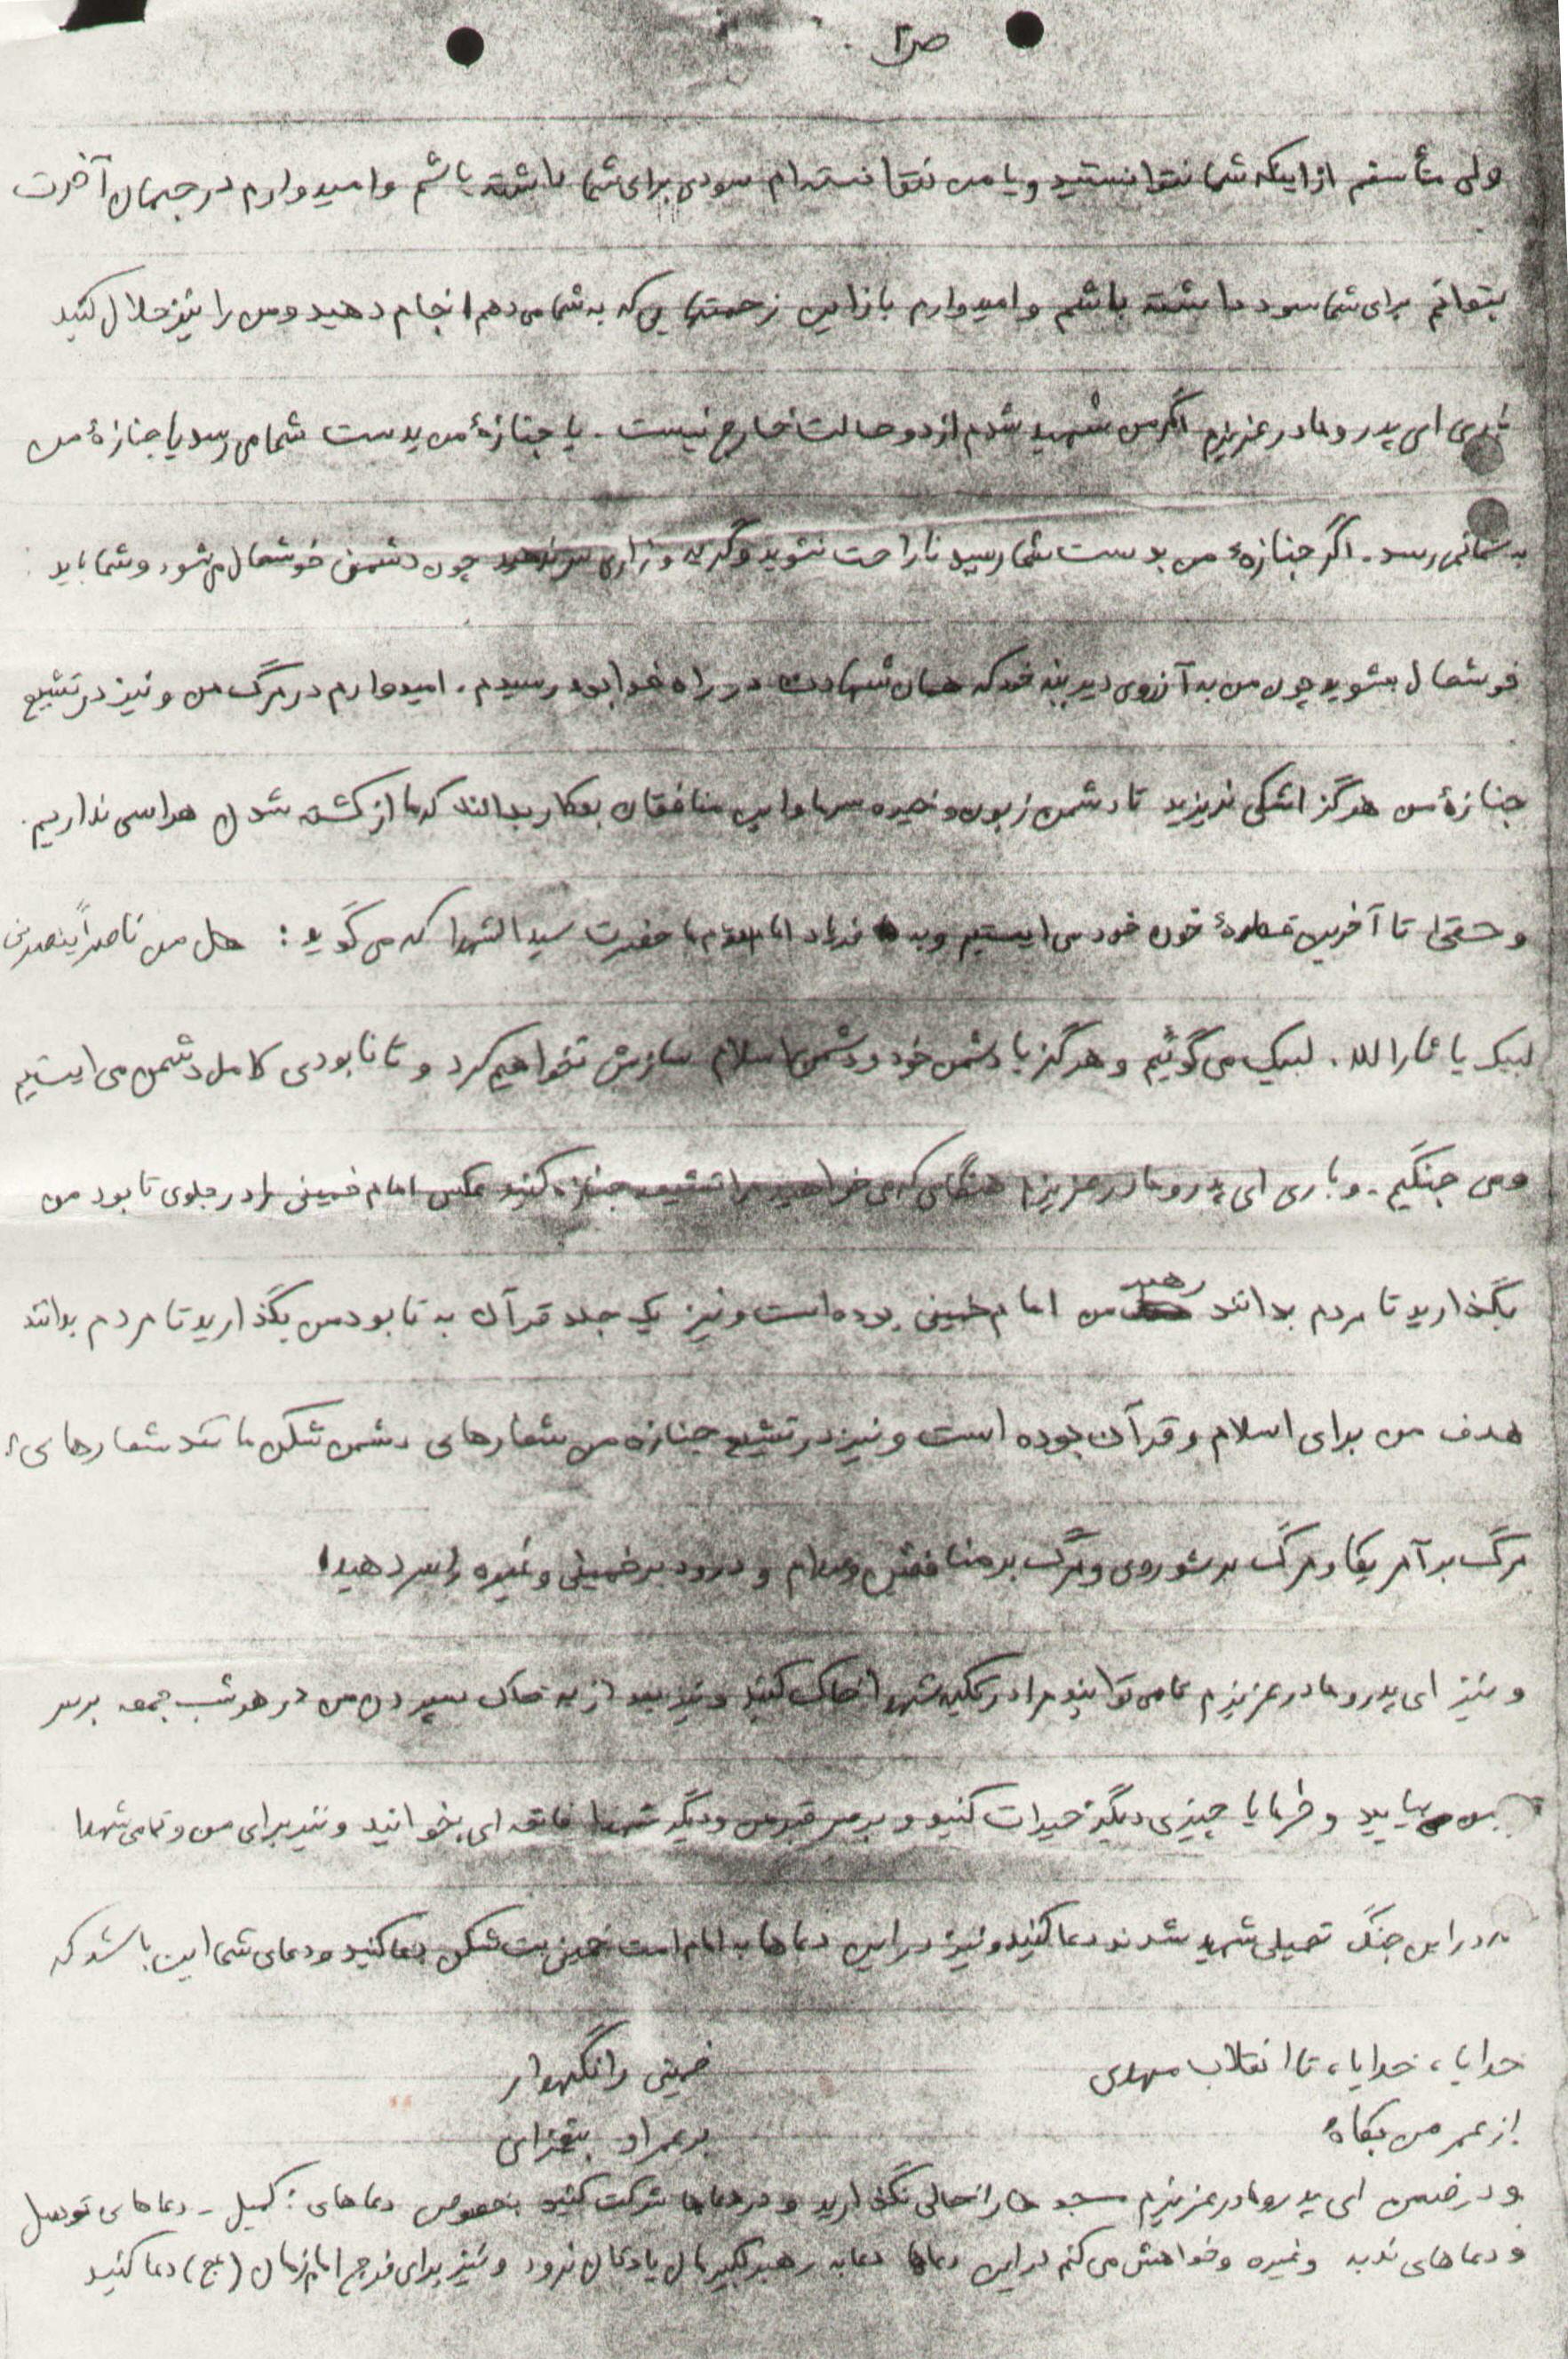 ص ۲
ولی متأسفم از اینکه شما نتوانستید و یا من نتوانسته ام سودی برای شما داشته باشم و امیدوارم در جهان آخرت
بتوانم برای شما سود داشته باشم و امیدوارم باز این زحمتهایی که به شما می دهم انجام دهید و من را نیز حلال کنید
ای پدر و مادر عزیزم اگر من شهید شدم از دو حالت خارج نیست . یا جنازهٔ من بدست شما می رسد یا جنازهٔ من
به شما نمی رسد . اگر جنازهٔ من بدست شما رسید ناراحت نشوید و گریه و زاری سر ندهید چون دشمن خوشحال می شود و شما باید
خوشحال بشوید چون من به آرزوی دیرینه خود که همان شهادت در راه خدا بود رسیدم . امیدوارم در مرگ من و نیز در تشییع
جنازهٔ من هرگز اشکی نریزید تا دشمن زبون و خیره سر ما و این منافقان بدانند که ما از کشته شدن هراسی نداریم .
و حتی تا آخرین قطرهٔ خون خود می ایستیم و به فریاد حضرت سید الشهدا که می گوید : هل من ناصراً ینصرنی
لبیک یا ثارالله . لبیک می گوئیم و هرگز با دشمن خود و دشمن اسلام سازش نخواهیم کرد و تا نابودی کامل دشمن می ایستیم
و می جنگیم . و باری ای پدر و مادر عزیزم هنگامی که می خواهید مرا تشییع جنازه کنید عکس امام خمینی را در جلوی تابود من
بگذارید تا مردم بدانند رهبر من امام خمینی بوده است و نیز یک جلد قرآن به تابود من بگذارید تا مردم بدانند
هدف من برای اسلام و قرآن بوده است و نیز در تشییع جنازه من شعارهای دشمن شکن مانند شعارهای :
مرگ بر آمریکا و مرگ بر شوروی و مرگ بر منافقین و صدام و درود بر خمینی و غیره را سر دهید .
و نیز ای پدر و مادر عزیزم تا می توانید مرا در تکیه شهدا خاک کنید و نیز بعد از به خاک سپردن من در هر شب جمعه بر سر
من بیایید و خرمایا چیزی دیگر خیرات کنید و بر سر قبر من و دیگر شهدا فاتحه ای بخوانید و نیز برای من و تمامی شهدا
که در این جنگ تحمیلی شهید شدند دعا کنید و نیز در این دعاها به امام امت خمینی بت شکن دعا کنید و دعای شما این باشد که
خدایا ، خدایا ، تا انقلاب مهدی خمینی را نگهدار
از عمر من بکاه بر عمر او بیفزای
و در ضمن ای پدر و مادر عزیزم مسجدها را خالی نگذارید و در دعاها شرکت کنید بخصوص دعاهای : کمیل - دعاهای توسل
و دعاهای ندبه و غیره و خواهش می کنم در این دعاها دعا به رهبر کبیرمان یادتان نرود و نیز برای فرج امام زمان (عج) دعا کنید